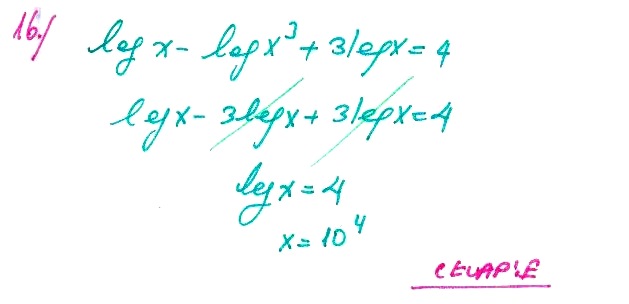 16./ log x - log x³ + 3 log x = 4
log x - 3 log x + 3 log x = 4
log x = 4
x = 10⁴
CEVAP: E